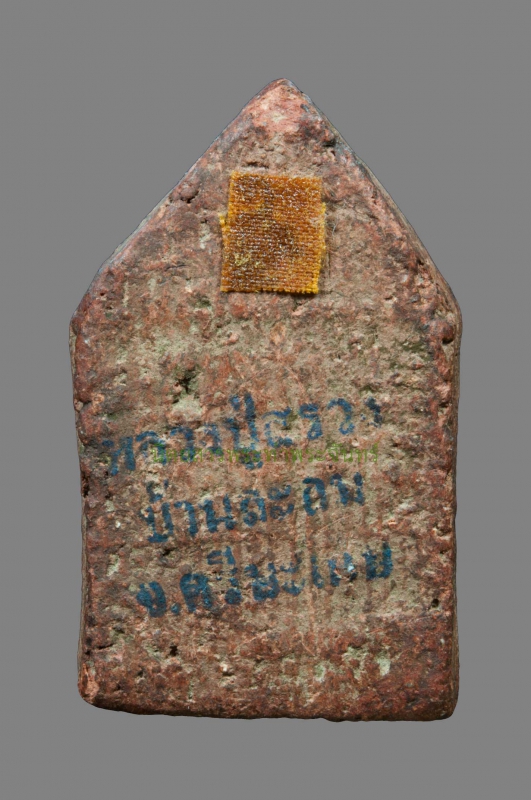 หลวงปู่สรวง
บ้านละลม
จ.ศรีษะเกษ